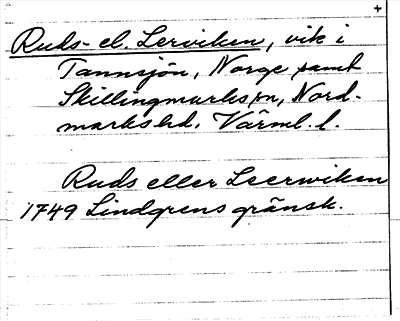 +
Ruds- el. Lerviken, vik i
Tannsjön, Norge samt
Skillingmarks sn, Nord-
marks hd, Värml. l.
Ruds eller Leerwiken
1749 Lindgrens gränsk.